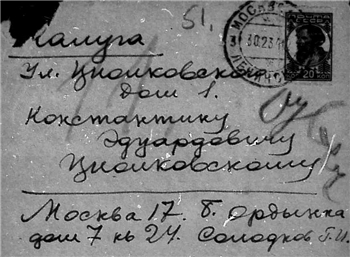 51.
Калуга
Ул. Циолковского
дом 1.
Константину
Эдуардовичу
Циолковскому
Москва 17. Б. Ордынка
дом 7 кв 24. Солодков Г.И.
МОСКВА
20